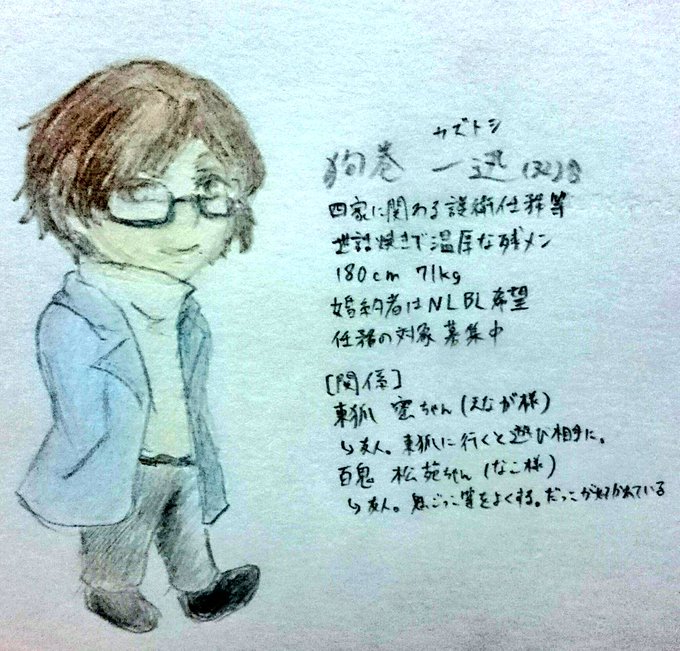 カズトシ
狗巻 一迅 (32)♂
四家に関わる護衛任務等
世話焼きで温厚な残メン
180cm 71kg
婚約者はNLBL希望
任務の対象募集中
[関係]
東狐 蜜ちゃん(えなが様)
↳友人。東狐に行くと遊び相手に。
百鬼 松苑ちゃん(なこ様)
↳友人。鬼ごっこ等をよくする。だっこが好かれている